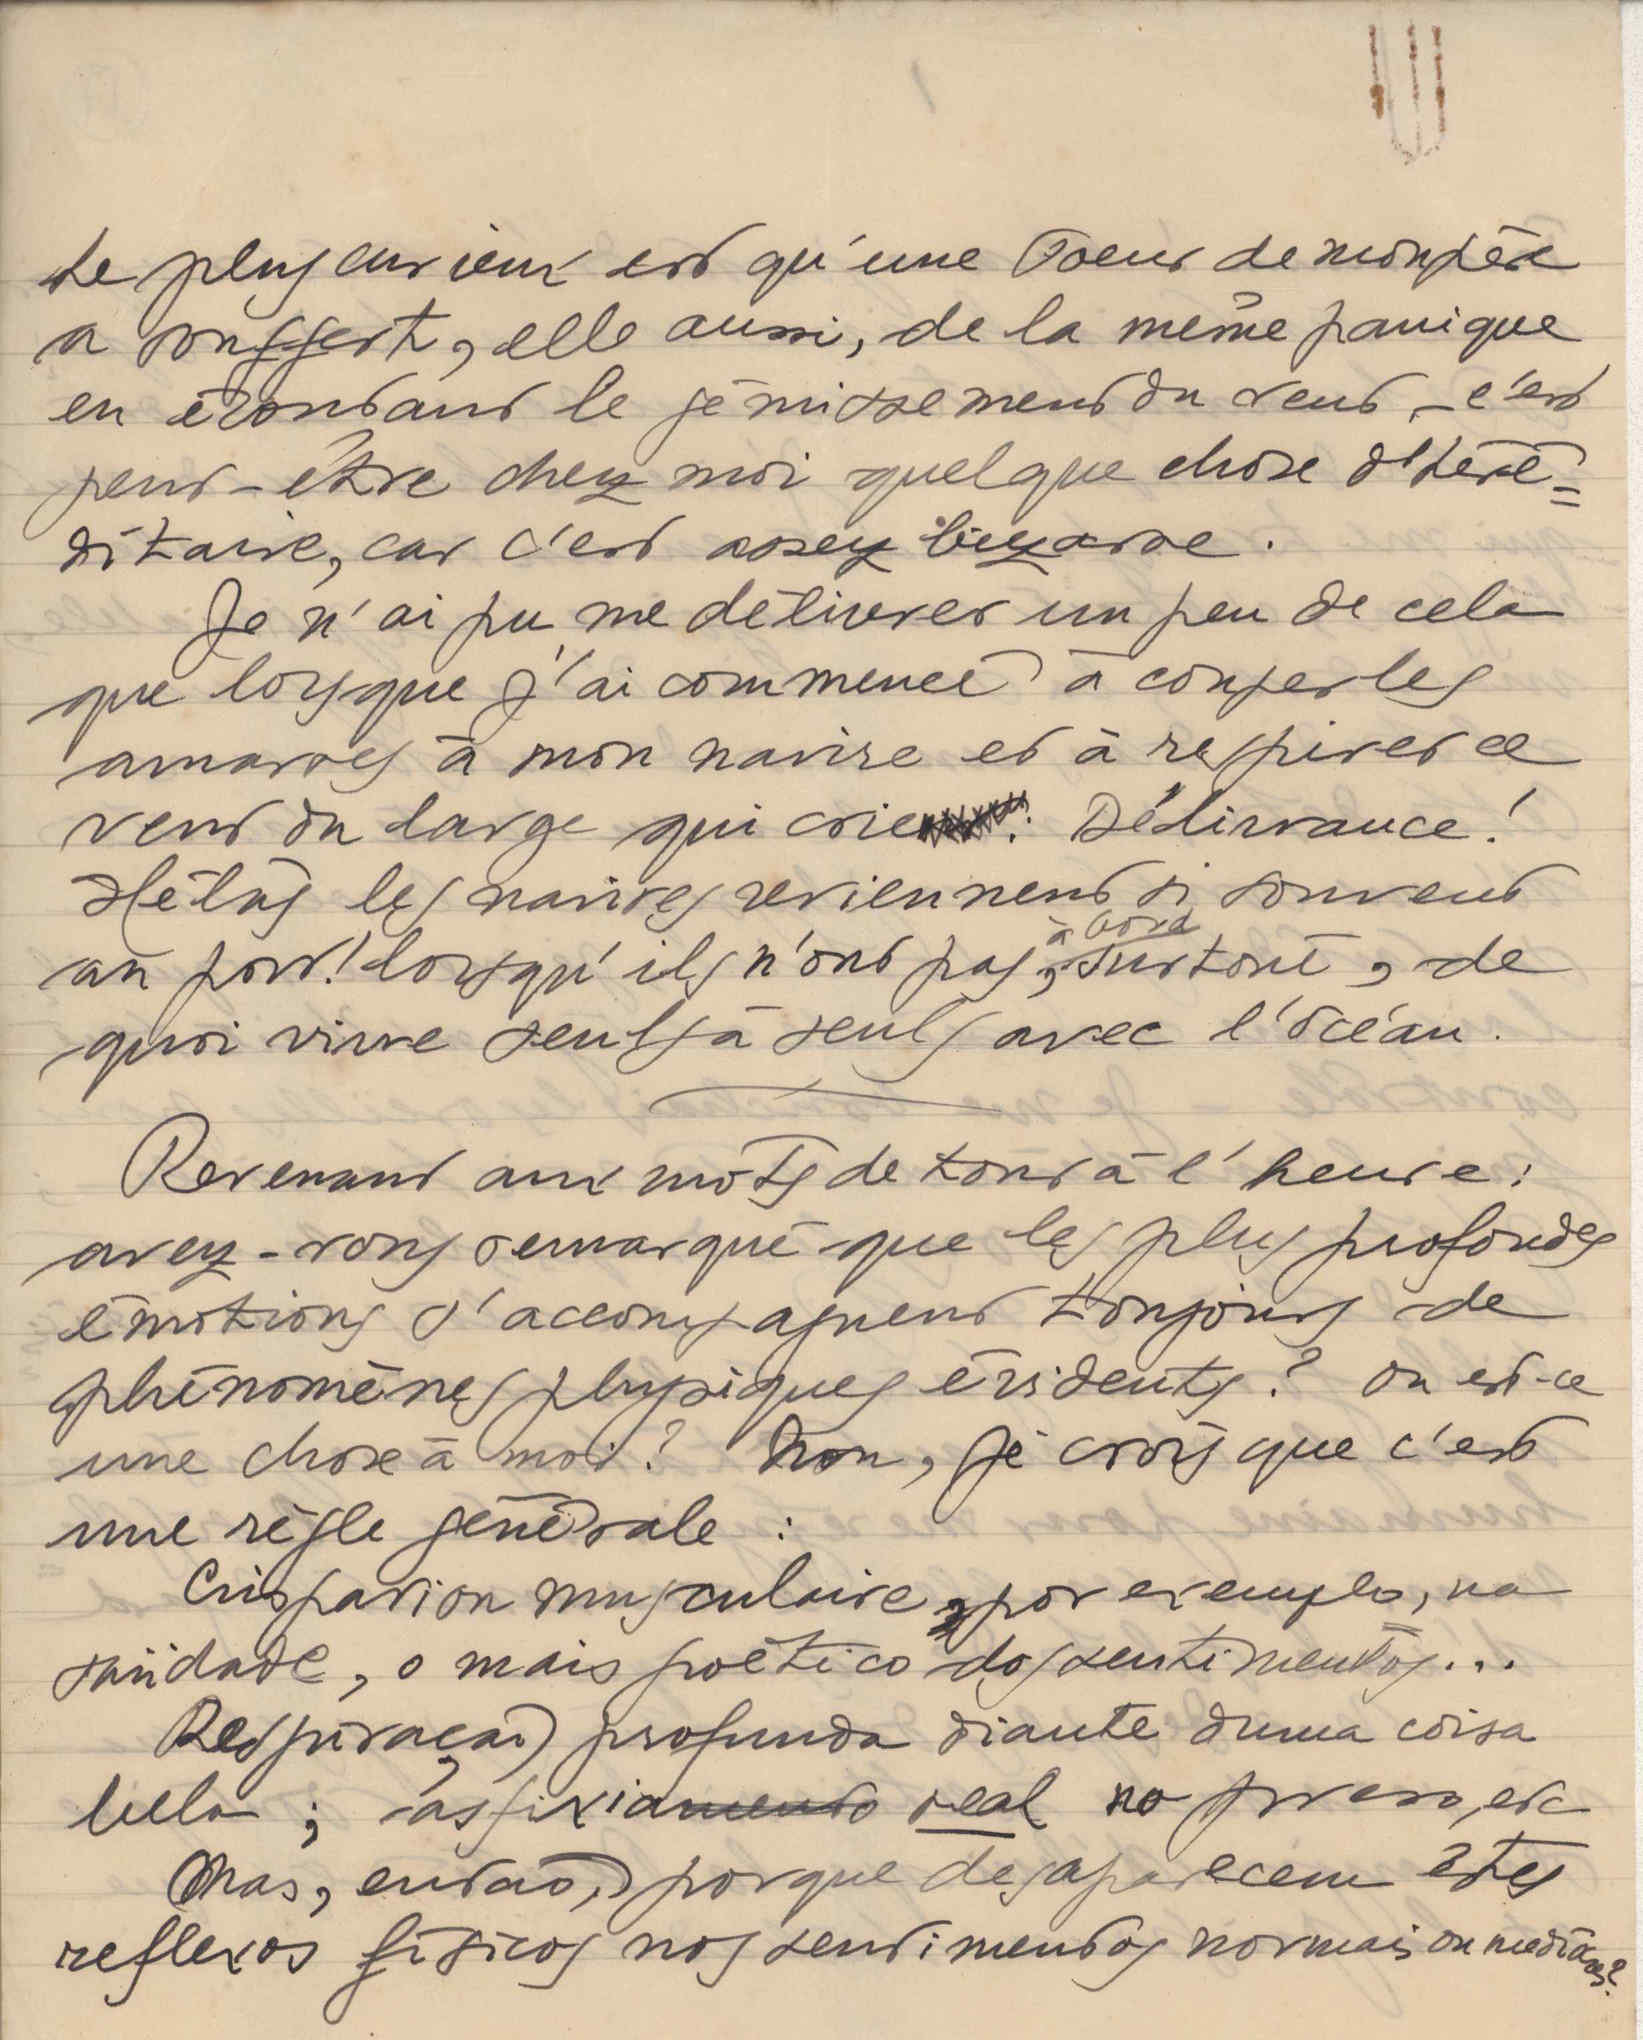 Le plus curieux est qu'une soeur de mon père
a souffert, elle aussi, de la même panique
en écoutant le gémissement du vent – c'est
peut-être chez moi quelque chose d'héré=
ditaire, car c'est assez bizarre.
Je n'ai pu me délivrer un peu de cela
que lorsque j'ai commencé à couper les
amarres à mon navire et à respirer ce
vent du large qui crie : Délivrance!
Hélas les navires reviennent si souvent
à bord
au port! lorsqu'ils n'ont pas, surtout, de
quoi vivre seuls à seuls avec l'océan.
Revenant aux mots de tout à l'heure:
avez-vous remarqué que les plus profondes
émotions s'accompagnent toujours de
phénomènes physiques évidents? ou est-ce
une chose à moi? Non, je crois que c'est
une règle générale :
Crispation musculaire, por exemplo, na
saüdade, o mais poético dos sentimentos...
Respiração profunda diante duma coisa
bela; asfixiamento real no preso, etc
Mas, então, porque desaparecem êstes
reflexos físicos nos sentimentos normais ou mediócres?